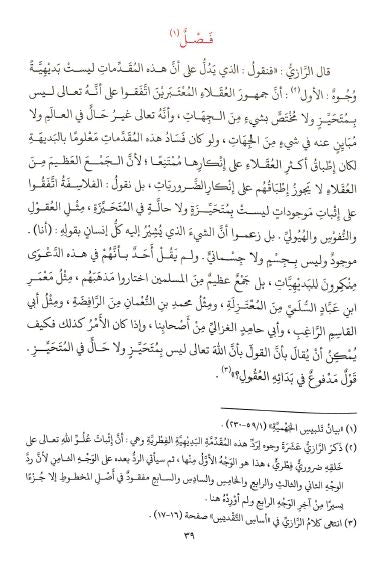 فَصْلٌ (١)
قال الرَّازيُّ : «فنقولُ : الذي يَدُلُّ على أنَّ هذه المُقَدِّماتِ ليستْ بَدِيْهِيَّةً
وُجوهٌ : الأول(٢) : أنَّ جمهورَ العُقلاءِ المُعْتبَرِيْنَ اتَّفَقوا على أنَّـهُ تعالى ليس
بِمُتَحَيِّزٍ ولا مُخْتَصٍّ بشيءٍ مِنَ الجِهَاتِ ، وأنَّهُ تعالى غيرُ حَالٍّ في العالَمِ ولا
مُبَايِنٍ عنه في شيءٍ مِنَ الجِهَاتِ ، ولو كان فَسَادُ هذه المُقَدِّماتِ مَعْلومًا بالبَدِيْهَةِ
لكان إطْبَاقُ أكثرِ العُقلاءِ على إنْكارِها مُمْتَنِعًا ؛ لأنَّ الجَمْعَ العظيمَ مِنَ
العقلاءِ لا يَجوزُ إطْبَاقُهُم على إنْكارِ الضَّروريَّاتِ ، بل نقولُ : الفلاسِفَةُ اتَّفَقُوا
على إثْباتِ مَوجوداتٍ ليستْ بِمُتَحَيِّزَةٍ ولا حالَّةٍ في المُتَحَيِّزَةِ ، مِثْلِ العُقولِ
والنُّفوْسِ والهَيُولَىْ ، بل زعموا أنَّ الشيءَ الذي يُشِيْرُ إليه كلُّ إنسانٍ بقولِهِ : (أنا) .
موجودٌ وليس بِجِسْمٍ ولا جِسْمانِيٍّ . ولم يَقُلْ أَحَدٌ بأنَّهُم في هذه الدَّعْوَى
مُنْكِرونَ للبَدِيْهِيَّاتِ ، بل جَمْعٌ عظيمٌ مِنَ المسلمين اختاروا مَذهَبَهُم ، مِثْلُ مَعْمَرِ
ابنِ عَبَّادٍ السُّلَمِيِّ مِنَ المُعْتَزِلَةِ ، ومِثْلُ محمدِ بنِ النُّعْمانِ مِنَ الرَّافِضَةِ ، ومِثْلُ أبي
القاسِمِ الرَّاغِبِ ، وأبي حامِدٍ الغزاليِّ مِنْ أصْحابِنا ، وإذا كان الأَمْرُ كذلك فكيف
يُمْكِنُ أنْ يُقالَ بأنَّ القولَ بأنَّ اللهَ تعالى ليس بِمُتَحَيِّزٍ ولا حَالٍّ في المُتَحَيِّزِ .
قَوْلٌ مَدْفوعٌ في بَدَائِهِ العُقُولِ؟!»(٣) .
(١) «بيانُ تَلْبِيسِ الجَهْمِيَّةِ» (٥٩/١-٢٣٠) .
(٢) ذَكَرَ الرَّازِيُّ عَشَرَةَ وجوهٍ لِرَدِّ هذه المُقَدِّمَةِ البَدِيْهِيَّةِ الفِطْرِيَّةِ وهي : أنَّ إثْباتَ عُلُوِّ اللهِ تعالى على
خَلْقِهِ ضروريٌّ فِطْرِيٌّ ، هذا هو الوَجْهُ الأوَّلُ مِنْها ، ثم سيأتي الردُّ بعده على الوَجْهِ الثامنِ لأنَّ ردَّ
الوجهِ الثاني والثالثِ والرابعِ والخامِسِ والسادسِ والسابعِ مفقودٌ في أصْلِ المخطوطِ إلا جُزْءًا
يسيرًا مِنْ آخِرِ الوَجْهِ الرابعِ ولم أوْرِدْهُ هنا .
(٣) انتهى كلامُ الرَّازِيِّ في «أساسِ التَّقْدِيسِ» صفحة (١٦-١٧) .
٣٩